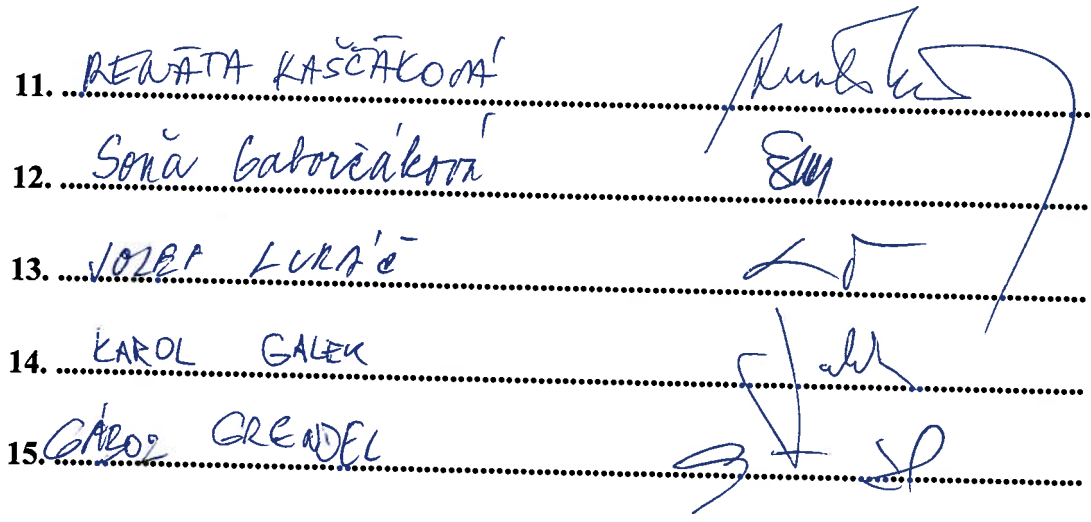 11. RENÁTA KAŠČÁKOVÁ
12. Soňa Gaborčáková
13. JOZEF LUKÁČ
14. KAROL GALEK
15. GÁBOR GRENDEL